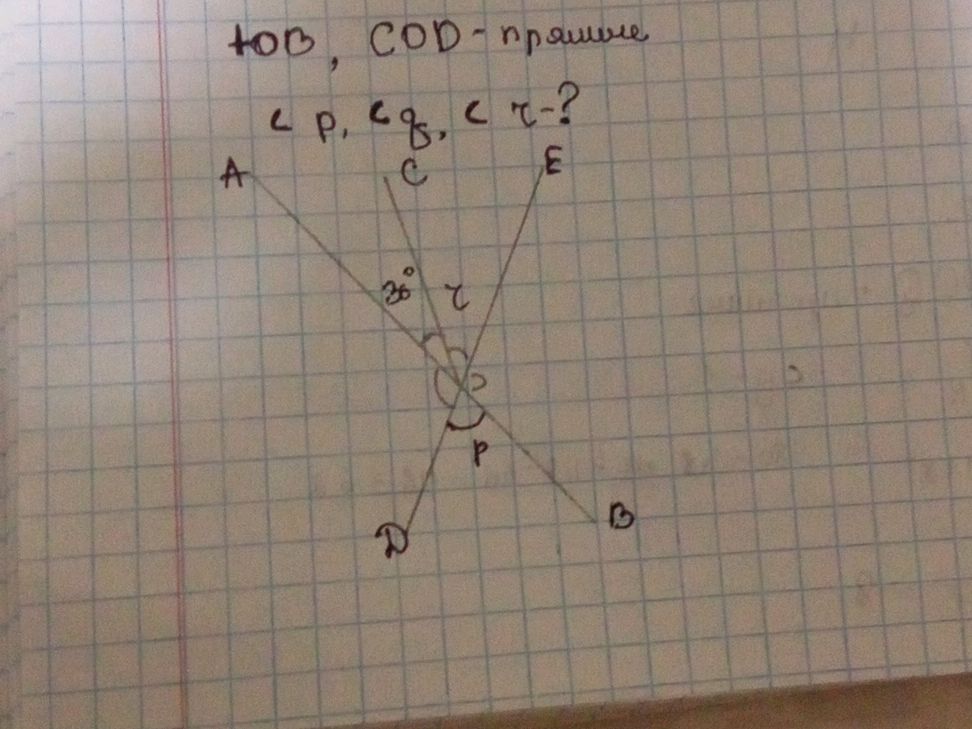 AOB, COD - прямые
< p, < q, < r - ?
A C E
30° r
p
D B